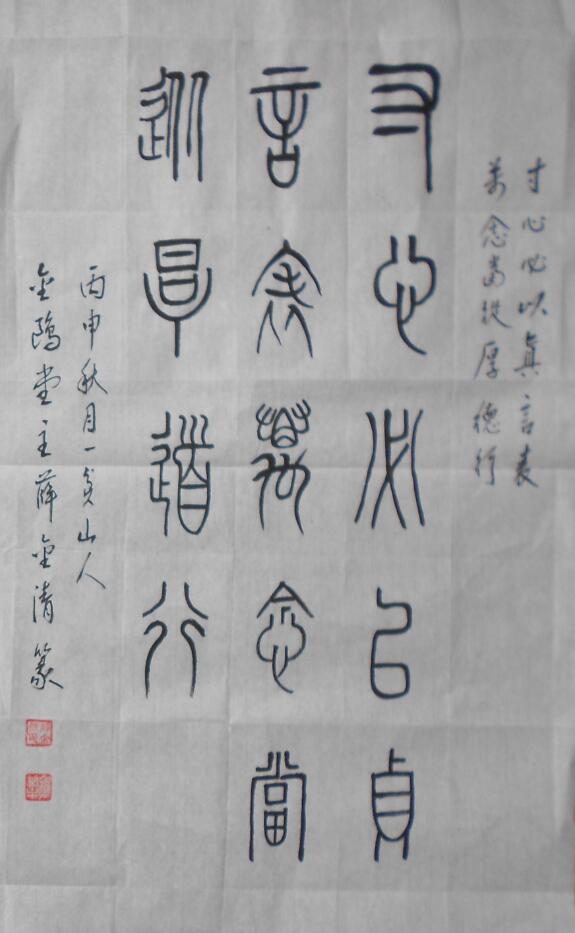 寸心必以真言表
萬念當從厚德行
寸心必以貞
言表萬念當
從厚道行
丙申秋月一山人
金鷗堂主薛金清篆